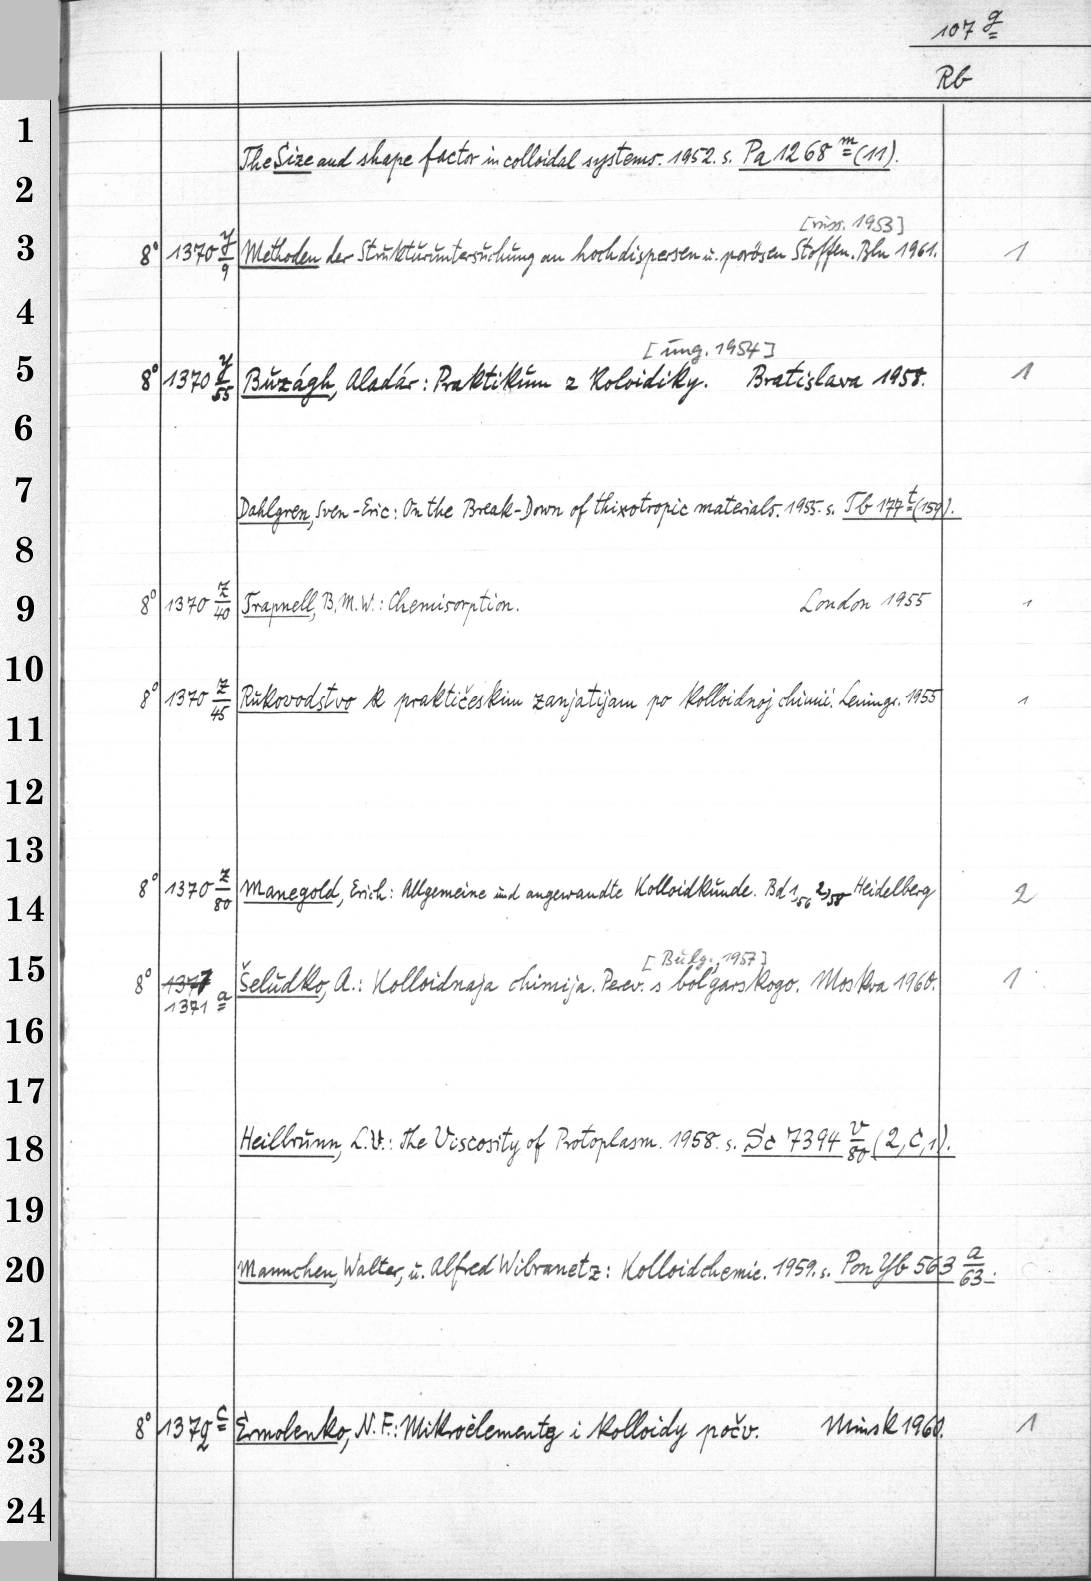 107 g
Rb
1
The Size and shape factor in colloidal systems. 1952. s. Pa 1268 m (11).
2
[russ. 1953]
3 8° 1370 y/9 Methoden der Strukturuntersuchung an hochdispersen u. porösen Stoffen. Bln 1961. 1
4
[ung. 1954]
5 8° 1370 y/55 Buzágh, Aladár: Praktikum z Koloidiky. Bratislava 1958. 1
6
7 Dahlgren, Sven-Eric: On the Break-Down of thixotropic materials. 1955. s. Tb 177 t (159).
8
9 8° 1370 z/40 Trapnell, B. M. W.: Chemisorption. London 1955 1
10
8° 1370 z/45 Rukovodstvo k praktičeskim zanjatijam po kolloidnoj chimii. Leningr. 1955 1
11
12
13
14 8° 1370 z/80 Manegold, Erich: Allgemeine und angewandte Kolloidkunde. Bd 1,56 2,58 Heidelberg 2
[Bulg., 1957]
15 8° 1377 Šeludko, A.: Kolloidnaja chimija. Perev. s bolgarskogo. Moskva 1960. 1
1371 a
16
17
18 Heilbrunn, L. V.: The Viscosity of Protoplasm. 1958. s. Sc 7394 v/80 (2,C,1).
19
20 Mannchen, Walter, u. Alfred Wibranetz: Kolloidchemie. 1959. s. Pon Yb 563 a/63.
21
22
23 8° 1372 c Ėrmolenko, N. F.: Mikroėlementy i kolloidy počv. Minsk 1960. 1
24